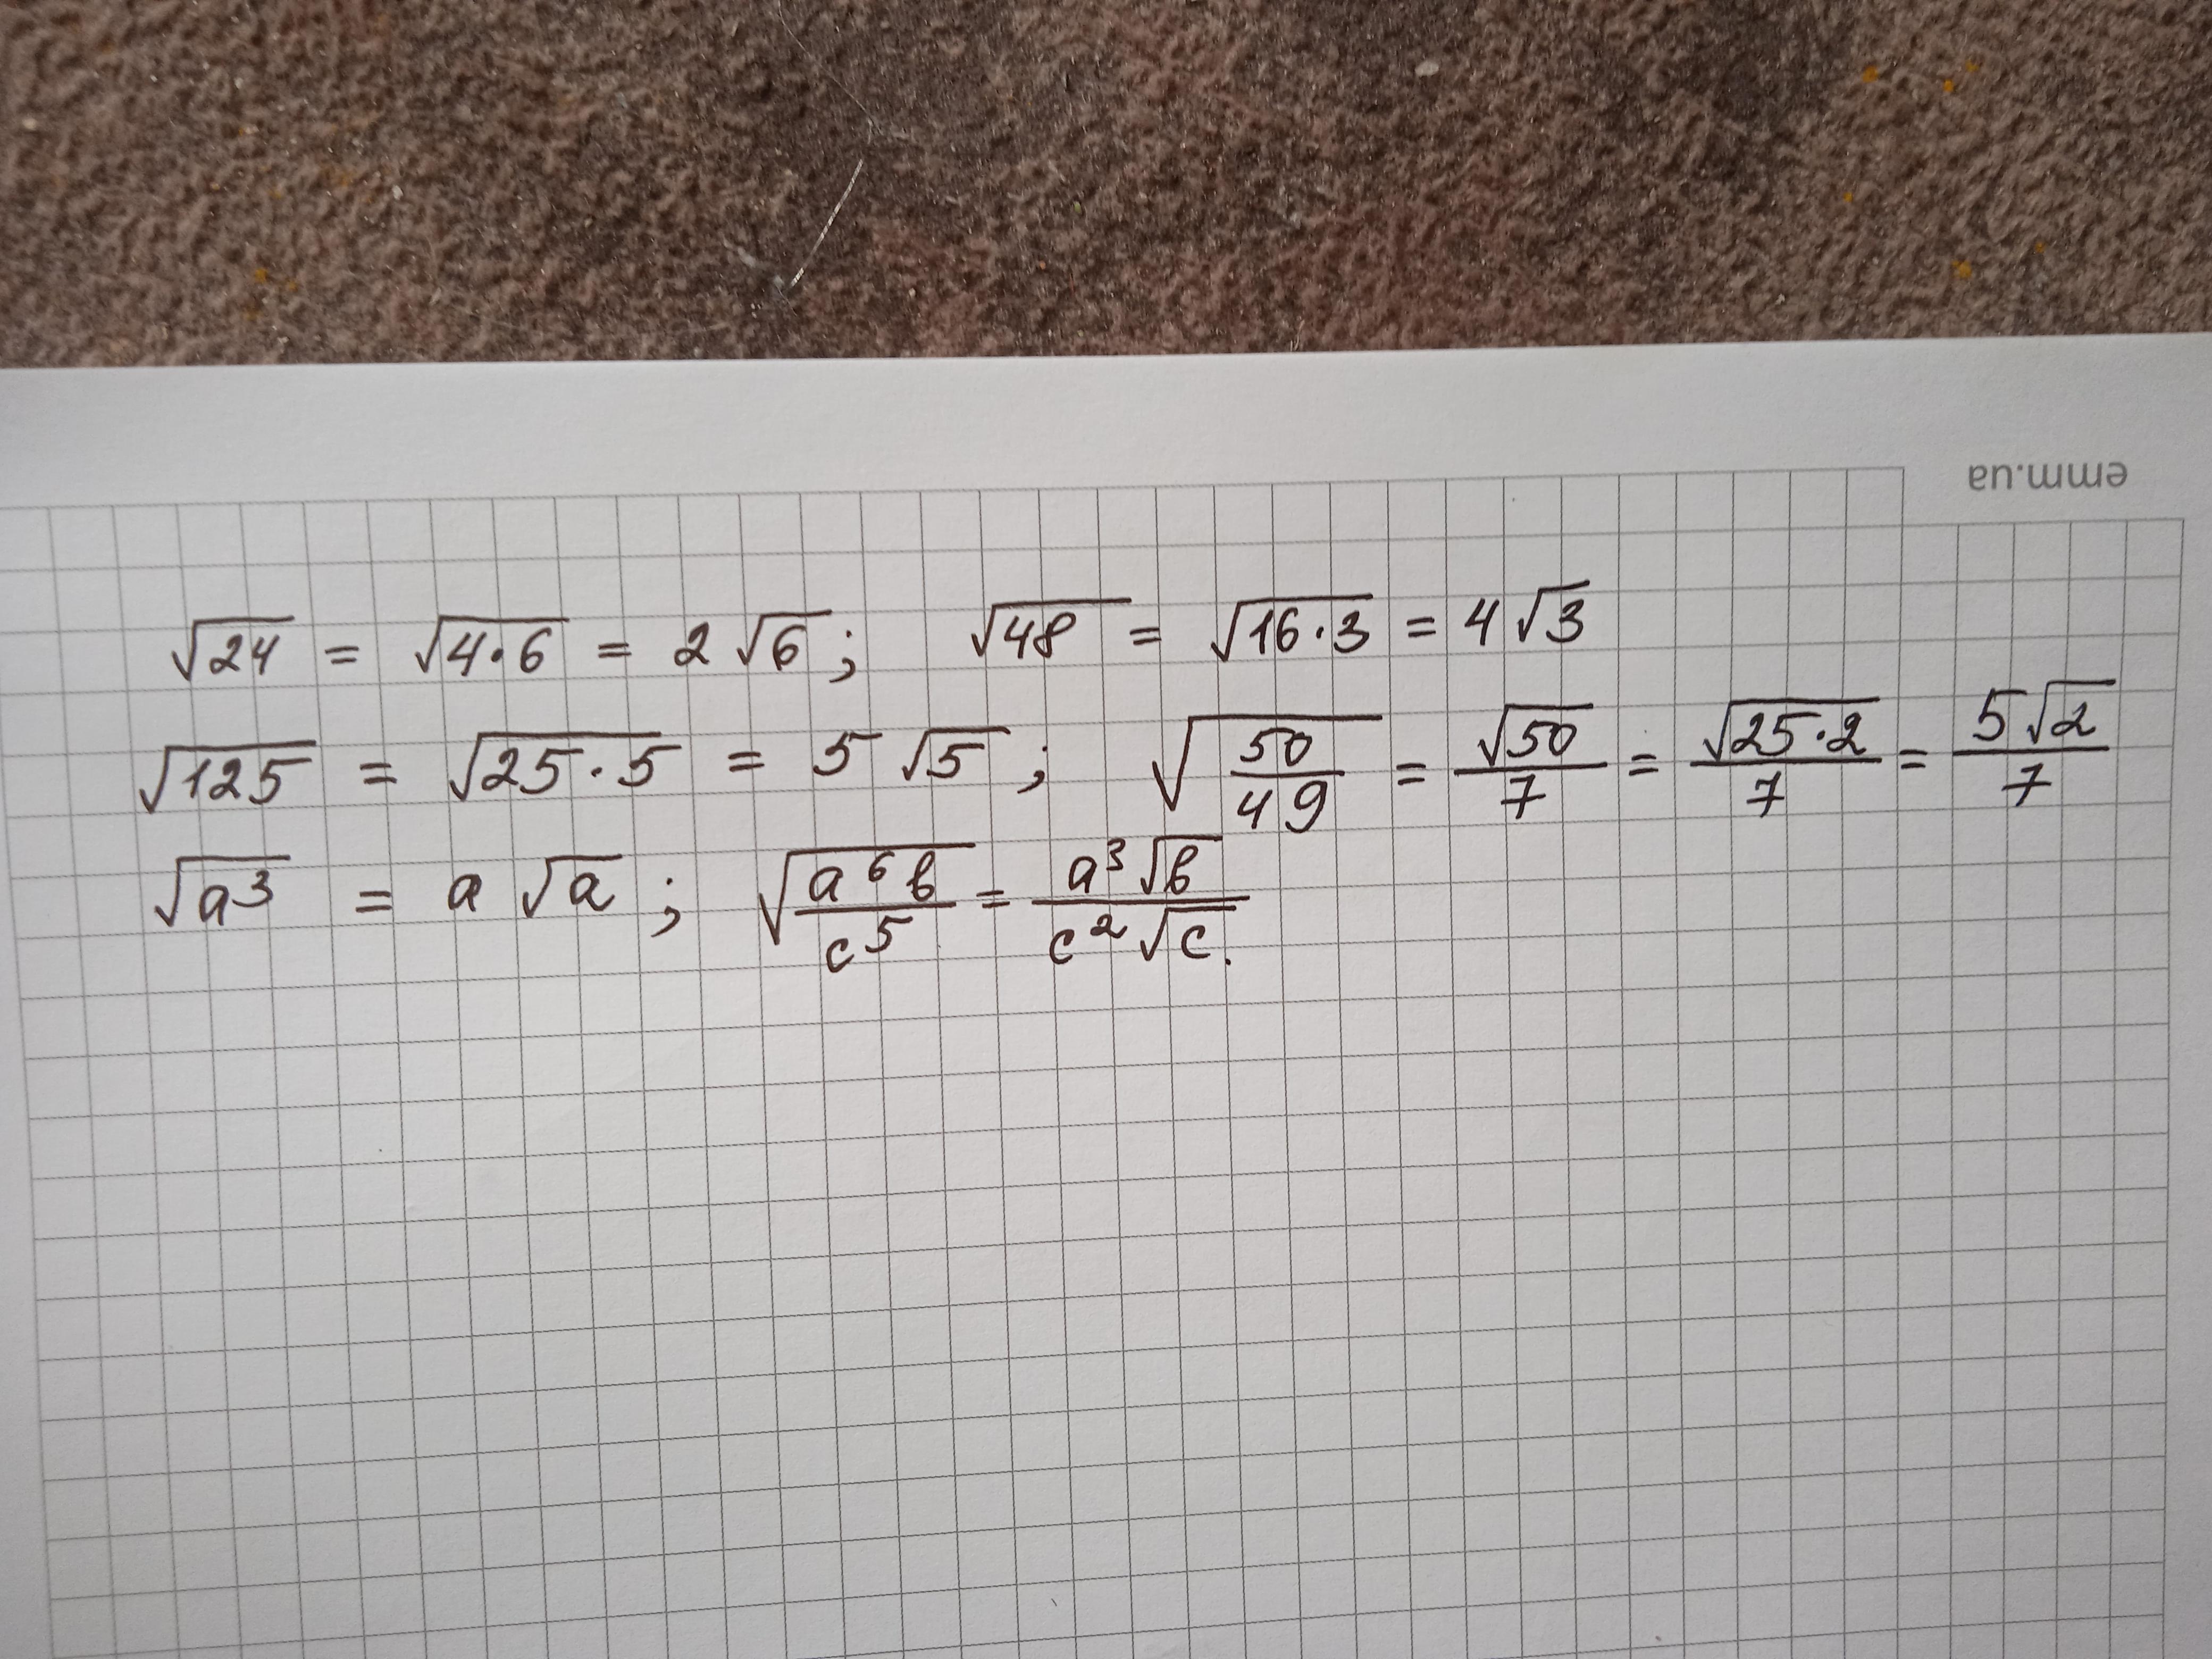 emm.ua
√24 = √4·6 = 2√6; √48 = √16·3 = 4√3
√125 = √25·5 = 5√5; √(50/49) = √50/7 = √25·2/7 = 5√2/7
√a³ = a√a; √(a⁶b/c⁵) = a³√b/c²√c.